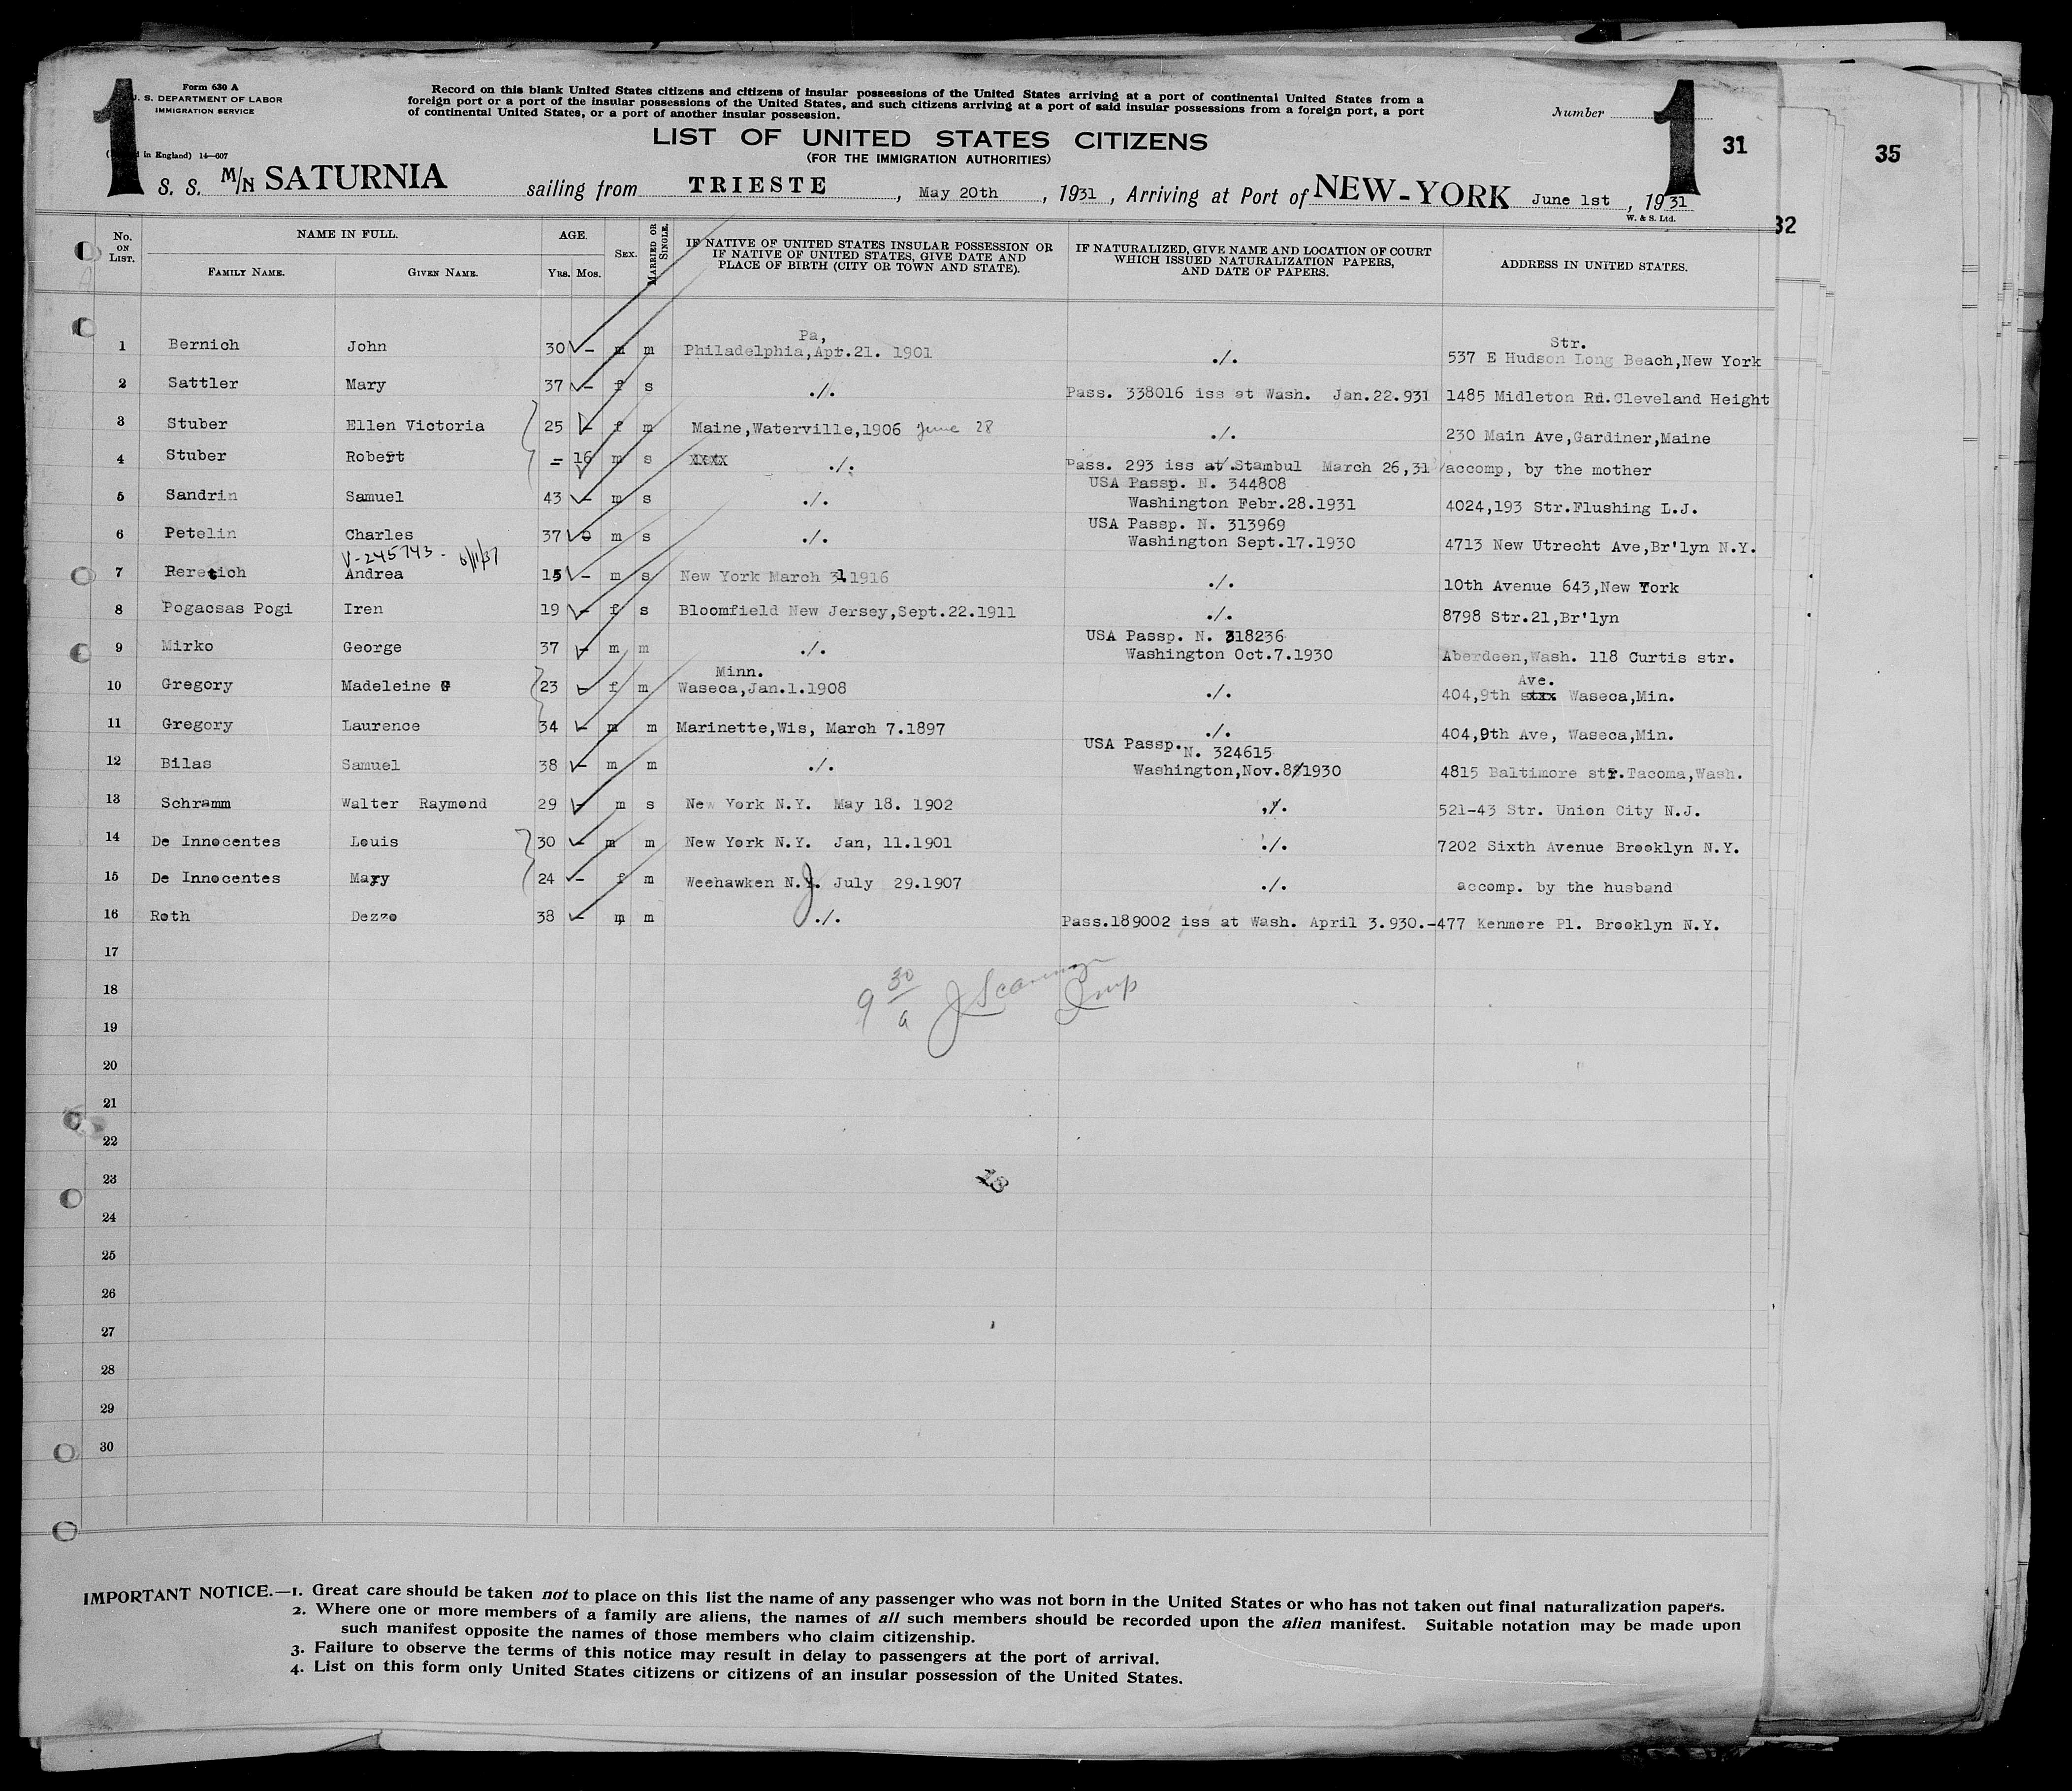 1
1
Form 630 A
U. S. DEPARTMENT OF LABOR
IMMIGRATION SERVICE
in England) 14—607
Record on this blank United States citizens and citizens of insular possessions of the United States arriving at a port of continental United States from a
foreign port or a port of the insular possessions of the United States, and such citizens arriving at a port of said insular possessions from a foreign port, a port
of continental United States, or a port of another insular possession.
Number
31
35
32
LIST OF UNITED STATES CITIZENS
(FOR THE IMMIGRATION AUTHORITIES)
S. S. M/N SATURNIA sailing from TRIESTE, May 20th, 1931, Arriving at Port of NEW-YORK June 1st, 1931
W. & S. Ltd.
No. ON LIST. NAME IN FULL. FAMILY NAME. GIVEN NAME. AGE. YRS. MOS. SEX. MARRIED OR SINGLE. IF NATIVE OF UNITED STATES INSULAR POSSESSION OR IF NATIVE OF UNITED STATES, GIVE DATE AND PLACE OF BIRTH (CITY OR TOWN AND STATE). IF NATURALIZED, GIVE NAME AND LOCATION OF COURT WHICH ISSUED NATURALIZATION PAPERS, AND DATE OF PAPERS. ADDRESS IN UNITED STATES.
Pa, Str.
1 Bernich John 30 – m m Philadelphia,Apr.21. 1901 ./. 537 E Hudson Long Beach,New York
2 Sattler Mary 37 – f s ./. Pass. 338016 iss at Wash. Jan.22.931 1485 Midleton Rd.Cleveland Height
3 Stuber Ellen Victoria 25 – f m Maine,Waterville,1906 June 28 ./. 230 Main Ave,Gardiner,Maine
4 Stuber Robert – 16 m s xxxx ./. Pass. 293 iss at Stambul March 26,31 accomp, by the mother
USA Passp. N. 344808
5 Sandrin Samuel 43 – m s ./. Washington Febr.28.1931 4024,193 Str.Flushing L.J.
USA Passp. N. 313969
6 Petelin Charles 37 m s ./. Washington Sept.17.1930 4713 New Utrecht Ave,Br'lyn N.Y.
V-245743 - 6/11/37
7 Reretich Andrea 15 – m s New York March 31.1916 ./. 10th Avenue 643,New York
8 Pogacsas Pogi Iren 19 – f s Bloomfield New Jersey,Sept.22.1911 ./. 8798 Str.21,Br'lyn
USA Passp. N. 318236
9 Mirko George 37 – m m ./. Washington Oct.7.1930 Aberdeen,Wash. 118 Curtis str.
Minn. Ave.
10 Gregory Madeleine G 23 – f m Waseca,Jan.1.1908 ./. 404,9th stxx Waseca,Min.
11 Gregory Laurence 34 – m m Marinette,Wis, March 7.1897 ./. 404,9th Ave, Waseca,Min.
USA Passp. N. 324615
12 Bilas Samuel 38 – m m ./. Washington,Nov.8/1930 4815 Baltimore str.Tacoma,Wash.
13 Schramm Walter Raymond 29 – m s New York N.Y. May 18. 1902 ./. 521-43 Str. Union City N.J.
14 De Innocentes Louis 30 – m m New York N.Y. Jan, 11.1901 ./. 7202 Sixth Avenue Brooklyn N.Y.
15 De Innocentes Mary 24 – f m Weehawken N.J. July 29.1907 ./. accomp. by the husband
16 Roth Dezzo 38 – m m ./. Pass.189002 iss at Wash. April 3.930.– 477 Kenmore Pl. Brooklyn N.Y.
17
18
9 30/a J Insp
19
20
21
22
23
24
25
26
27
28
29
30
IMPORTANT NOTICE.—1. Great care should be taken not to place on this list the name of any passenger who was not born in the United States or who has not taken out final naturalization papers.
2. Where one or more members of a family are aliens, the names of all such members should be recorded upon the alien manifest. Suitable notation may be made upon
such manifest opposite the names of those members who claim citizenship.
3. Failure to observe the terms of this notice may result in delay to passengers at the port of arrival.
4. List on this form only United States citizens or citizens of an insular possession of the United States.